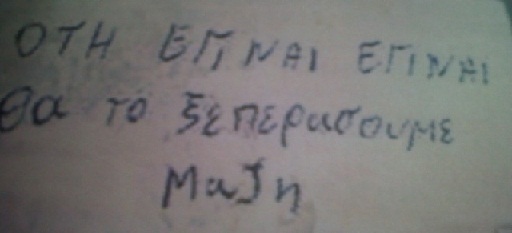 ΟΤΗ ΕΓΙΝΑΙ ΕΓΙΝΑΙ
Θα το ξεπερασουμε
Μαζη